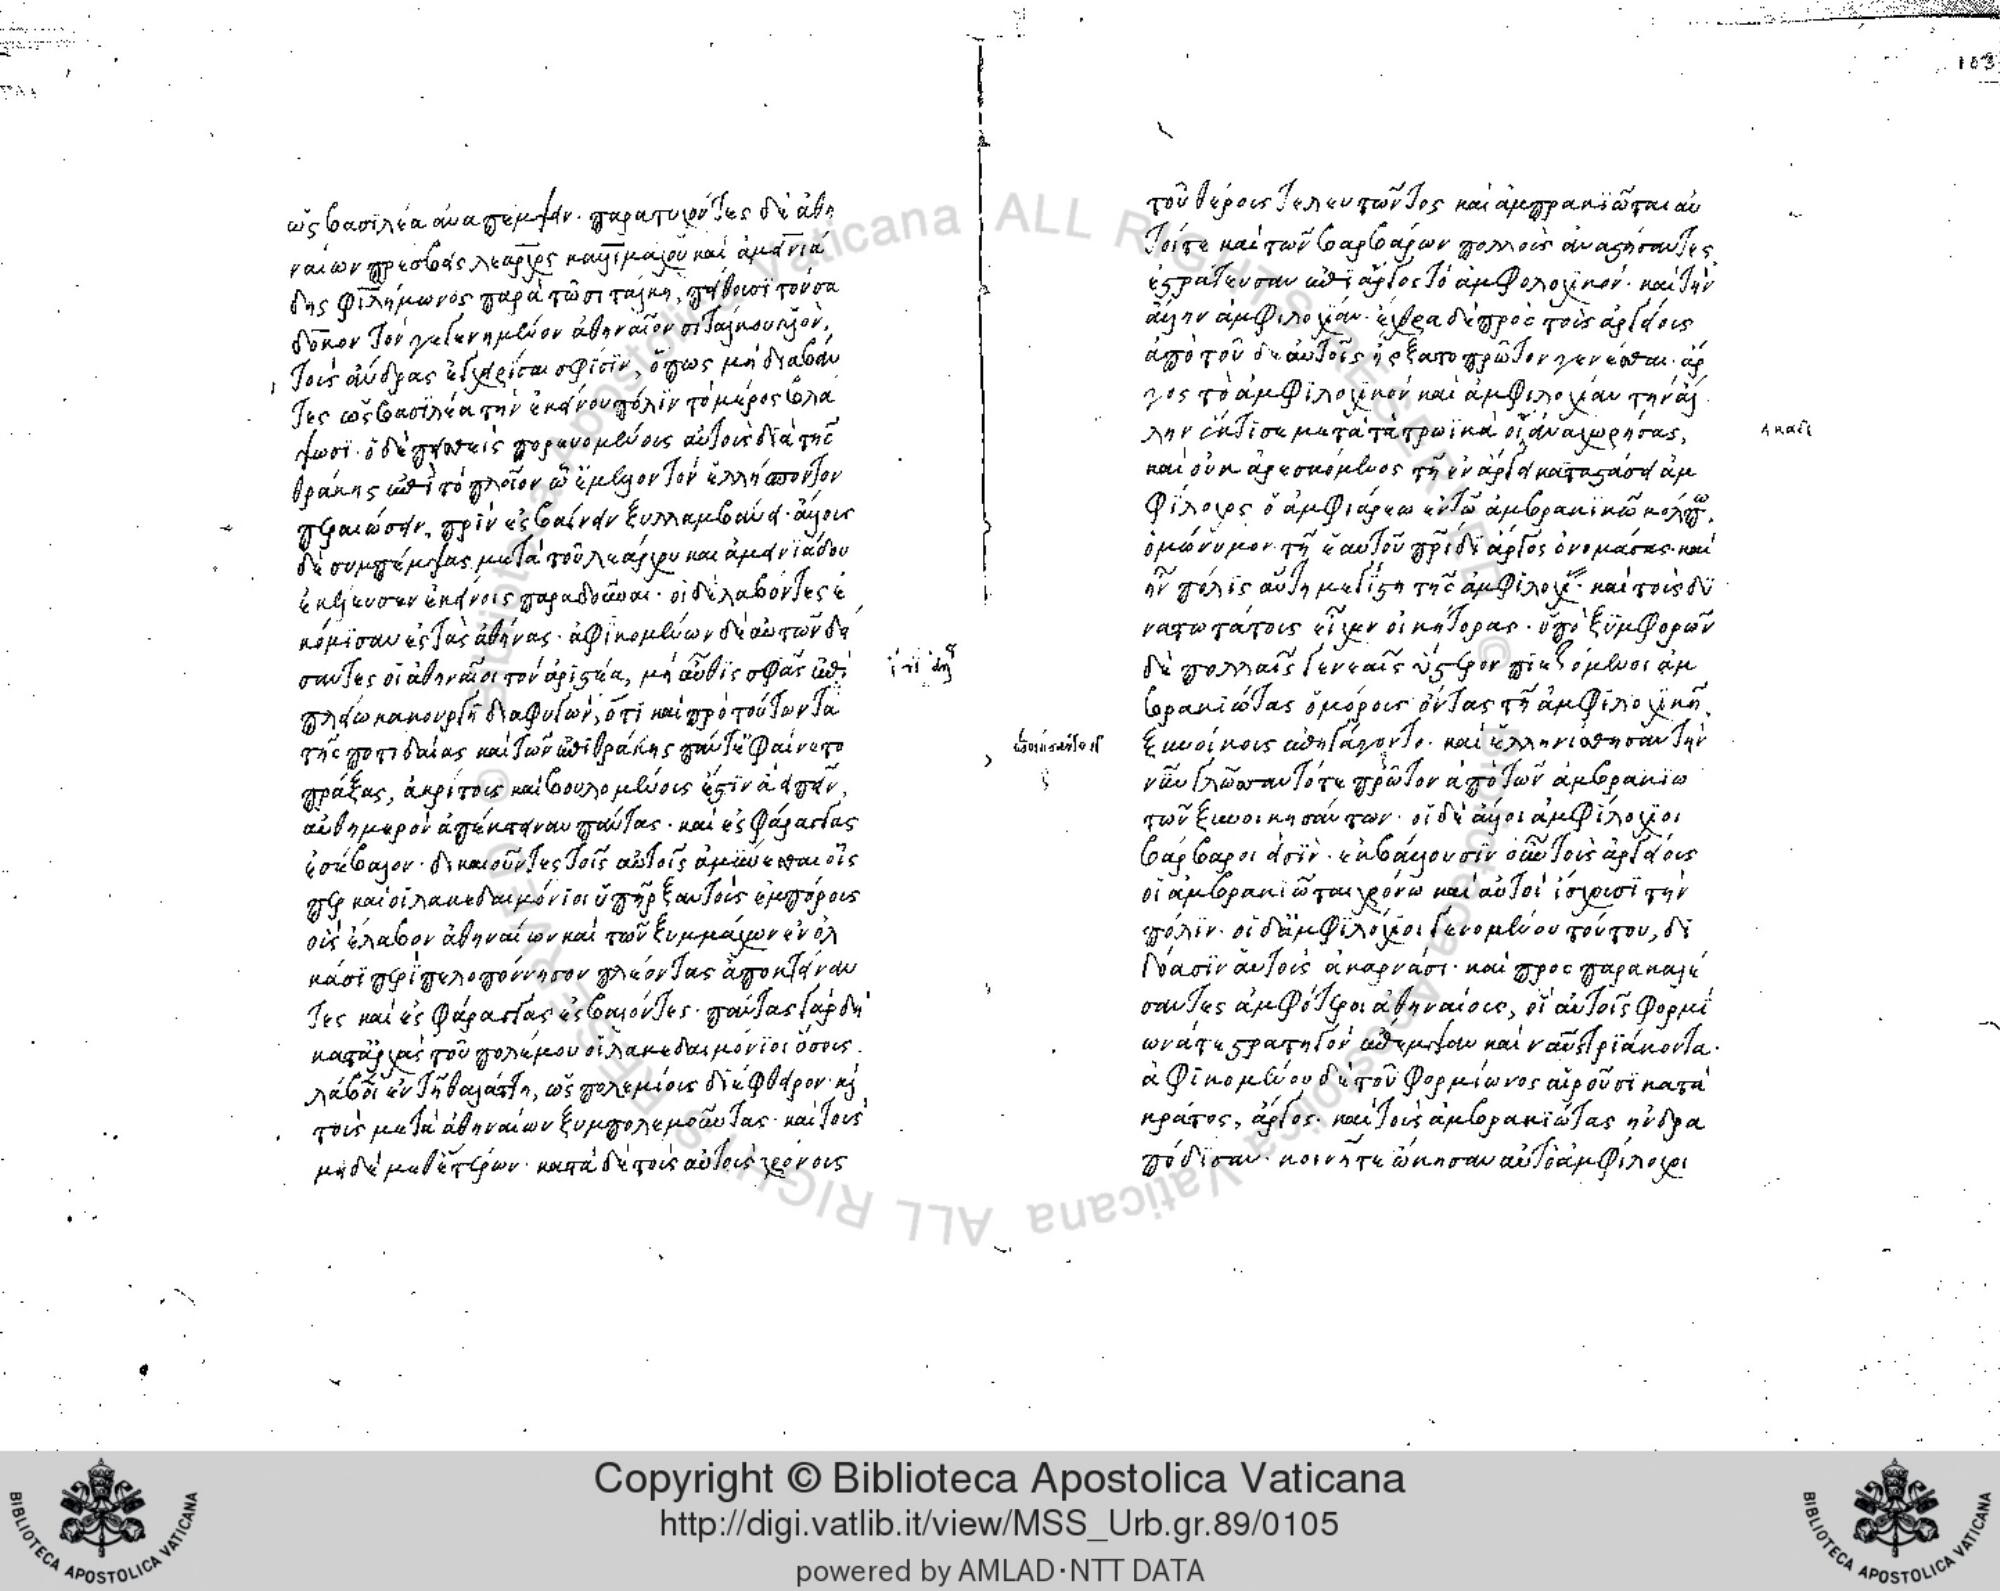 ὡς βασιλέα ἀναπέμψειν· παρατυχόντες δὲ ἀθη
ναίων πρέσβεις λέαρχος καλλιμάχου καὶ ἀμεινιά
δης φιλήμωνος παρὰ τῶ σιτάλκῃ, πείθουσι τὸν σά
δοκον τὸν γεγενημένον ἀθηναῖον σιτάλκου υἱὸν,
τοὺς ἄνδρας ἐγχειρίσαι σφίσιν, ὅπως μὴ διαβάν
τες ὡς βασιλέα τὴν ἐκείνου πόλιν τὸ μέρος βλά
ψωσι· ὁ δὲ πεισθεὶς πορευομένους αὐτοὺς διὰ τῆς
θράκης ἐπὶ τὸ πλοῖον ὧ ἔμελλον τὸν ἑλλήσποντον
περαιώσειν, πρὶν ἐσβαίνειν ξυλλαμβάνει· ἄλλους
δὲ συμπέμψας μετὰ τοῦ λεάρχου καὶ ἀμεινιάδου
ἐκέλευσεν ἐκείνοις παραδοῦναι· οἱ δὲ λαβόντες ἐ
κόμισαν ἐς τὰς ἀθήνας· ἀφικομένων δὲ αὐτῶν δεί
σαντες οἱ ἀθηναῖοι τὸν ἀριστέα, μὴ αὖθις σφᾶς ἔτι
πλείω κακουργῇ διαφυγών, ὅτι καὶ πρὸ τούτων τὰ
τῆς ποτιδαίας καὶ τῶν ἐπὶ θράκης πάντ' ἐφαίνετο
πράξας, ἀκρίτους καὶ βουλομένους ἔστιν ἃ εἰπεῖν,
αὐθημερὸν ἀπέκτειναν πάντας· καὶ ἐς φάραγγας
ἐσέβαλον· δικαιοῦντες τοῖς αὐτοῖς ἀμύνεσθαι οἷς
περ καὶ οἱ λακεδαιμόνιοι ὑπῆρξαν τοὺς ἐμπόρους
οὓς ἔλαβον ἀθηναίων καὶ τῶν ξυμμάχων ἐν ὁλ
κάσι περὶ πελοπόννησον πλέοντας ἀποκτείναν
τες καὶ ἐς φάραγγας ἐσβαλόντες· πάντας γὰρ δὴ
κατ' ἀρχὰς τοῦ πολέμου οἱ λακεδαιμόνιοι ὅσους
λάβοιεν τῇ θαλάσσῃ, ὡς πολεμίους διέφθειρον· καὶ
τοὺς μετὰ ἀθηναίων ξυμπολεμοῦντας· καὶ τοὺς
μηδὲ μεθ' ἑτέρων· κατὰ δὲ τοὺς αὐτοὺς χρόνους
τοῦ θέρους τελευτῶντος καὶ ἀμπρακιῶται αὐ
τοί τε καὶ τῶν βαρβάρων πολλοὺς ἀναστήσαντες
ἐστράτευσαν ἐπὶ ἄργος τὸ ἀμφιλοχικόν· καὶ τὴν
ἄλλην ἀμφιλοχίαν· ἔχθρα δὲ πρὸς τοὺς ἀργείους
ἀπὸ τοῦδε αὐτοῖς ἤρξατο πρῶτον γενέσθαι· ἄρ
γος τὸ ἀμφιλοχικὸν καὶ ἀμφιλοχίαν τὴν ἄλ
λην ἔκτισε μετὰ τὰ τρωϊκὰ οἴ ἀναχωρήσας,
καὶ οὐκ ἀρεσκόμενος τῇ ἐν ἄργει καταστάσει ἀμ
φίλοχος ὁ ἀμφιάρεω ἐν τῶ ἀμβρακικῶ κόλπω,
ὁμώνυμον τῇ ἑαυτοῦ πατρίδι ἄργος ὀνομάσας· καὶ
ἦν πόλις αὕτη μεγίστη τῆς ἀμφιλοχίας· καὶ τοὺς δυ
νατωτάτους εἶχεν οἰκήτορας· ὑπὸ ξυμφορῶν
δὲ πολλαῖς γενεαῖς ὕστερον πιεζόμενοι ἀμ
βρακιώτας ὁμόρους ὄντας τῇ ἀμφιλοχικῇ
ξυνοίκους ἐπηγάγοντο· καὶ ἑλληνίσθησαν τὴν
νῦν γλῶσσαν τότε πρῶτον ἀπὸ τῶν ἀμβρακιω
τῶν ξυνοικησάντων· οἱ δὲ ἄλλοι ἀμφίλοχοι
βάρβαροι εἰσίν· ἐκβάλλουσιν οὖν τοὺς ἀργείους
οἱ ἀμβρακιῶται χρόνω καὶ αὐτοὶ ἴσχουσι τὴν
πόλιν· οἱ δ' ἀμφίλοχοι γενομένου τούτου, δι
δόασιν ἑαυτοὺς ἀκαρνᾶσι· καὶ προσπαρακαλέ
σαντες ἀμφότεροι ἀθηναίους, οἳ αὐτοῖς φορμί
ωνά τε στρατηγὸν ἔπεμψαν καὶ ναῦς τριάκοντα·
ἀφικομένου δὲ τοῦ φορμίωνος αἱροῦσι κατὰ
κράτος, ἄργος· καὶ τοὺς ἀμβρακιώτας ἠνδρα
πόδισαν· κοινῇ τε ὤκησαν αὐτὸ ἀμφίλοχοι
Copyright © Biblioteca Apostolica Vaticana
http://digi.vatlib.it/view/MSS_Urb.gr.89/0105
powered by AMLAD·NTT DATA